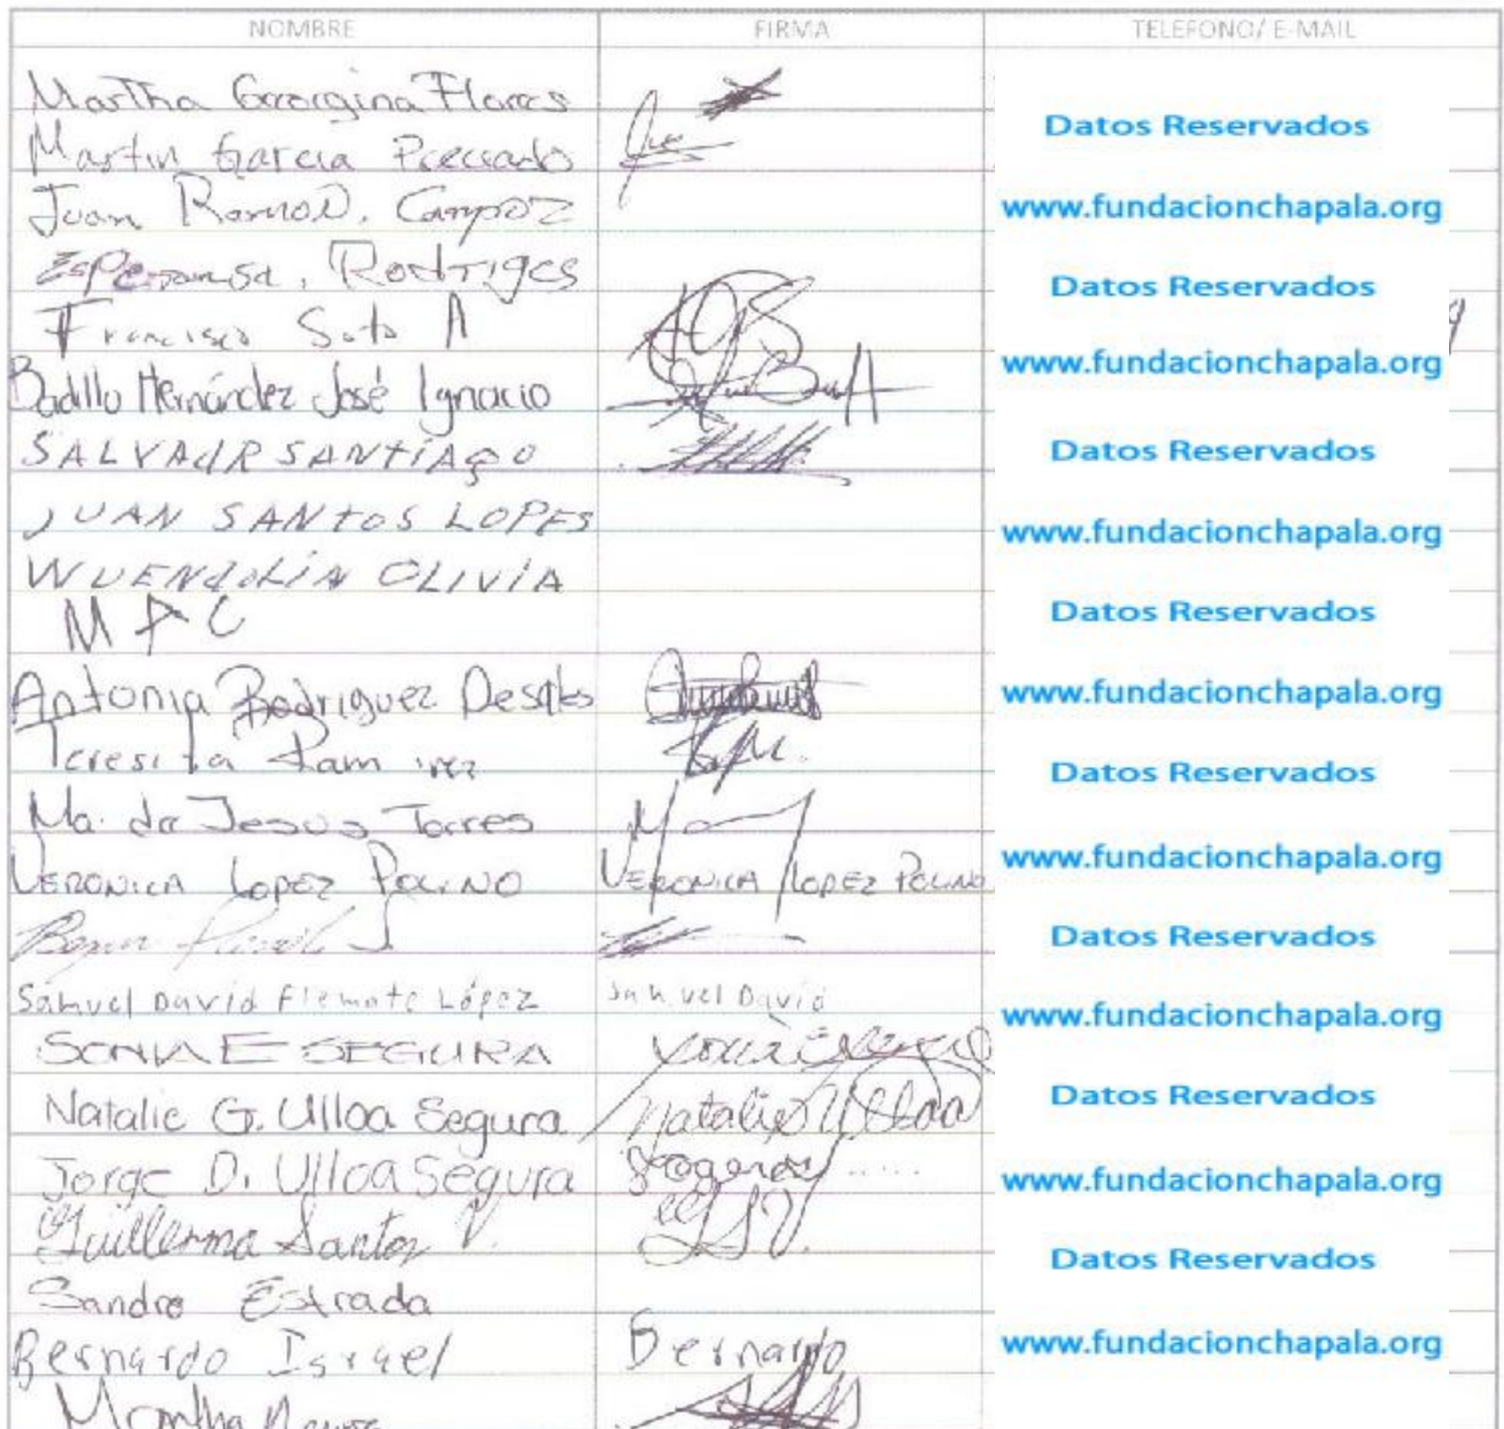 NOMBRE FIRMA TELEFONO/ E-MAIL
Martha Georgina Flores
Datos Reservados
Martin Garcia Preciado
Juan Ramon. Campoz
www.fundacionchapala.org
Esperansa. Rodriges
Datos Reservados
Francisco Soto A
www.fundacionchapala.org
Badillo Hernández José Ignacio
SALVAdR SANTIAGO
Datos Reservados
JUAN SANTOS LOPES
www.fundacionchapala.org
WUENdOLIN OLIVIA
Datos Reservados
Antonia Rodriguez
www.fundacionchapala.org
Teresita Ramirez
Datos Reservados
Ma. de Jesus Torres
www.fundacionchapala.org
VERONICA LOPEZ POLINO VERONICA LOPEZ POLINO
Datos Reservados
Samuel David Flemate López Samuel David
www.fundacionchapala.org
SONIA E SEGURA
Natalie G. Ulloa Segura Natalie Ulloa
Datos Reservados
Jorge D. Ulloa Segura
www.fundacionchapala.org
Guillermo Santos V.
Datos Reservados
Sandra Estrada
Bernardo Israel Bernardo
www.fundacionchapala.org